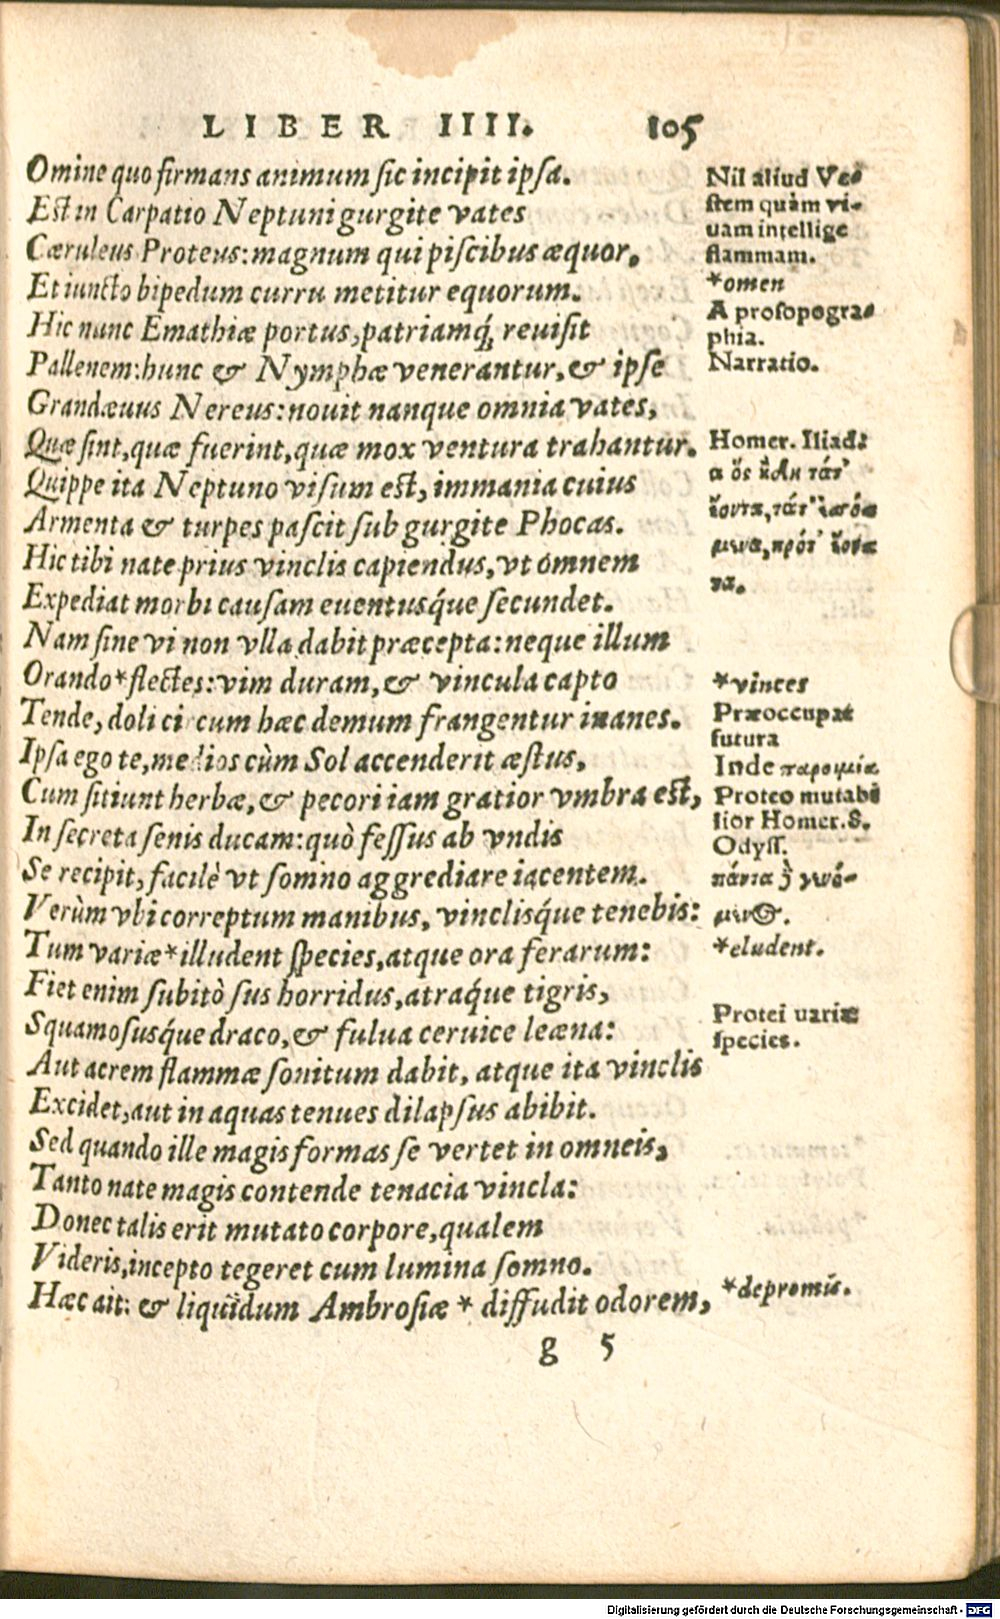 LIBER IIII. 105
Omine quo firmans animum sic incipit ipsa.
Est in Carpatio Neptuni gurgite vates
Cæruleus Proteus: magnum qui piscibus æquor,
Et iuncto bipedum curru metitur equorum.
Hic nunc Emathiæ portus, patriamq́; reuisit
Pallenem: hunc & Nymphæ venerantur, & ipse
Grandæuus Nereus: nouit nanque omnia vates,
Quæ sint, quæ fuerint, quæ mox ventura trahantur.
Quippe ita Neptuno visum est, immania cuius
Armenta & turpes pascit sub gurgite Phocas.
Hic tibi nate prius vinclis capiendus, vt omnem
Expediat morbi causam euentusq́ue secundet.
Nam sine vi non vlla dabit præcepta: neque illum
Orando *flectes: vim duram, & vincula capto
Tende, doli ci cum hæc demum frangentur inanes.
Ipsa ego te, medios cùm Sol accenderit æstus,
Cum sitiunt herbæ, & pecori iam gratior vmbra est,
In secreta senis ducam: quò fessus ab vndis
Se recipit, facilè vt somno aggrediare iacentem.
Verùm vbi correptum manibus, vinclisq́ue tenebis:
Tum variæ *illudent species, atque ora ferarum:
Fiet enim subitò sus horridus, atraq́ue tigris,
Squamosusq́ue draco, & fulua ceruice leæna:
Aut acrem flammæ sonitum dabit, atque ita vinclis
Excidet, aut in aquas tenues dilapsus abibit.
Sed quando ille magis formas se vertet in omneis,
Tanto nate magis contende tenacia vincla:
Donec talis erit mutato corpore, qualem
Videris, incepto tegeret cum lumina somno.
Hæc ait: & liquidum Ambrosiæ * diffudit odorem,
g 5
Nil aliud Ve-
stem quàm vi-
uam intellige
flammam.
*omen
A prosopogra-
phia.
Narratio.
Homer. Iliad:
α ὃς ᾔδη τάτ'
ἐόντα, τάτ' ἐσσό-
μενα, πρότ' ἐόν-
τα.
*vinces
Præoccupat
futura
Inde παροιμία
Proteo mutabi
lior Homer. 8.
Odyss.
πάντα δὲ γινό-
μενος.
*eludent.
Protei uariæ
species.
*depromũt.
Digitalisierung gefördert durch die Deutsche Forschungsgemeinschaft - DFG